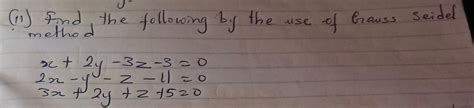 (11) Find the following by the use of Gauss Seidel
method
x + 2y - 3z - 3 = 0
2x - y - z - 11 = 0
3x + 2y + z + 5 = 0